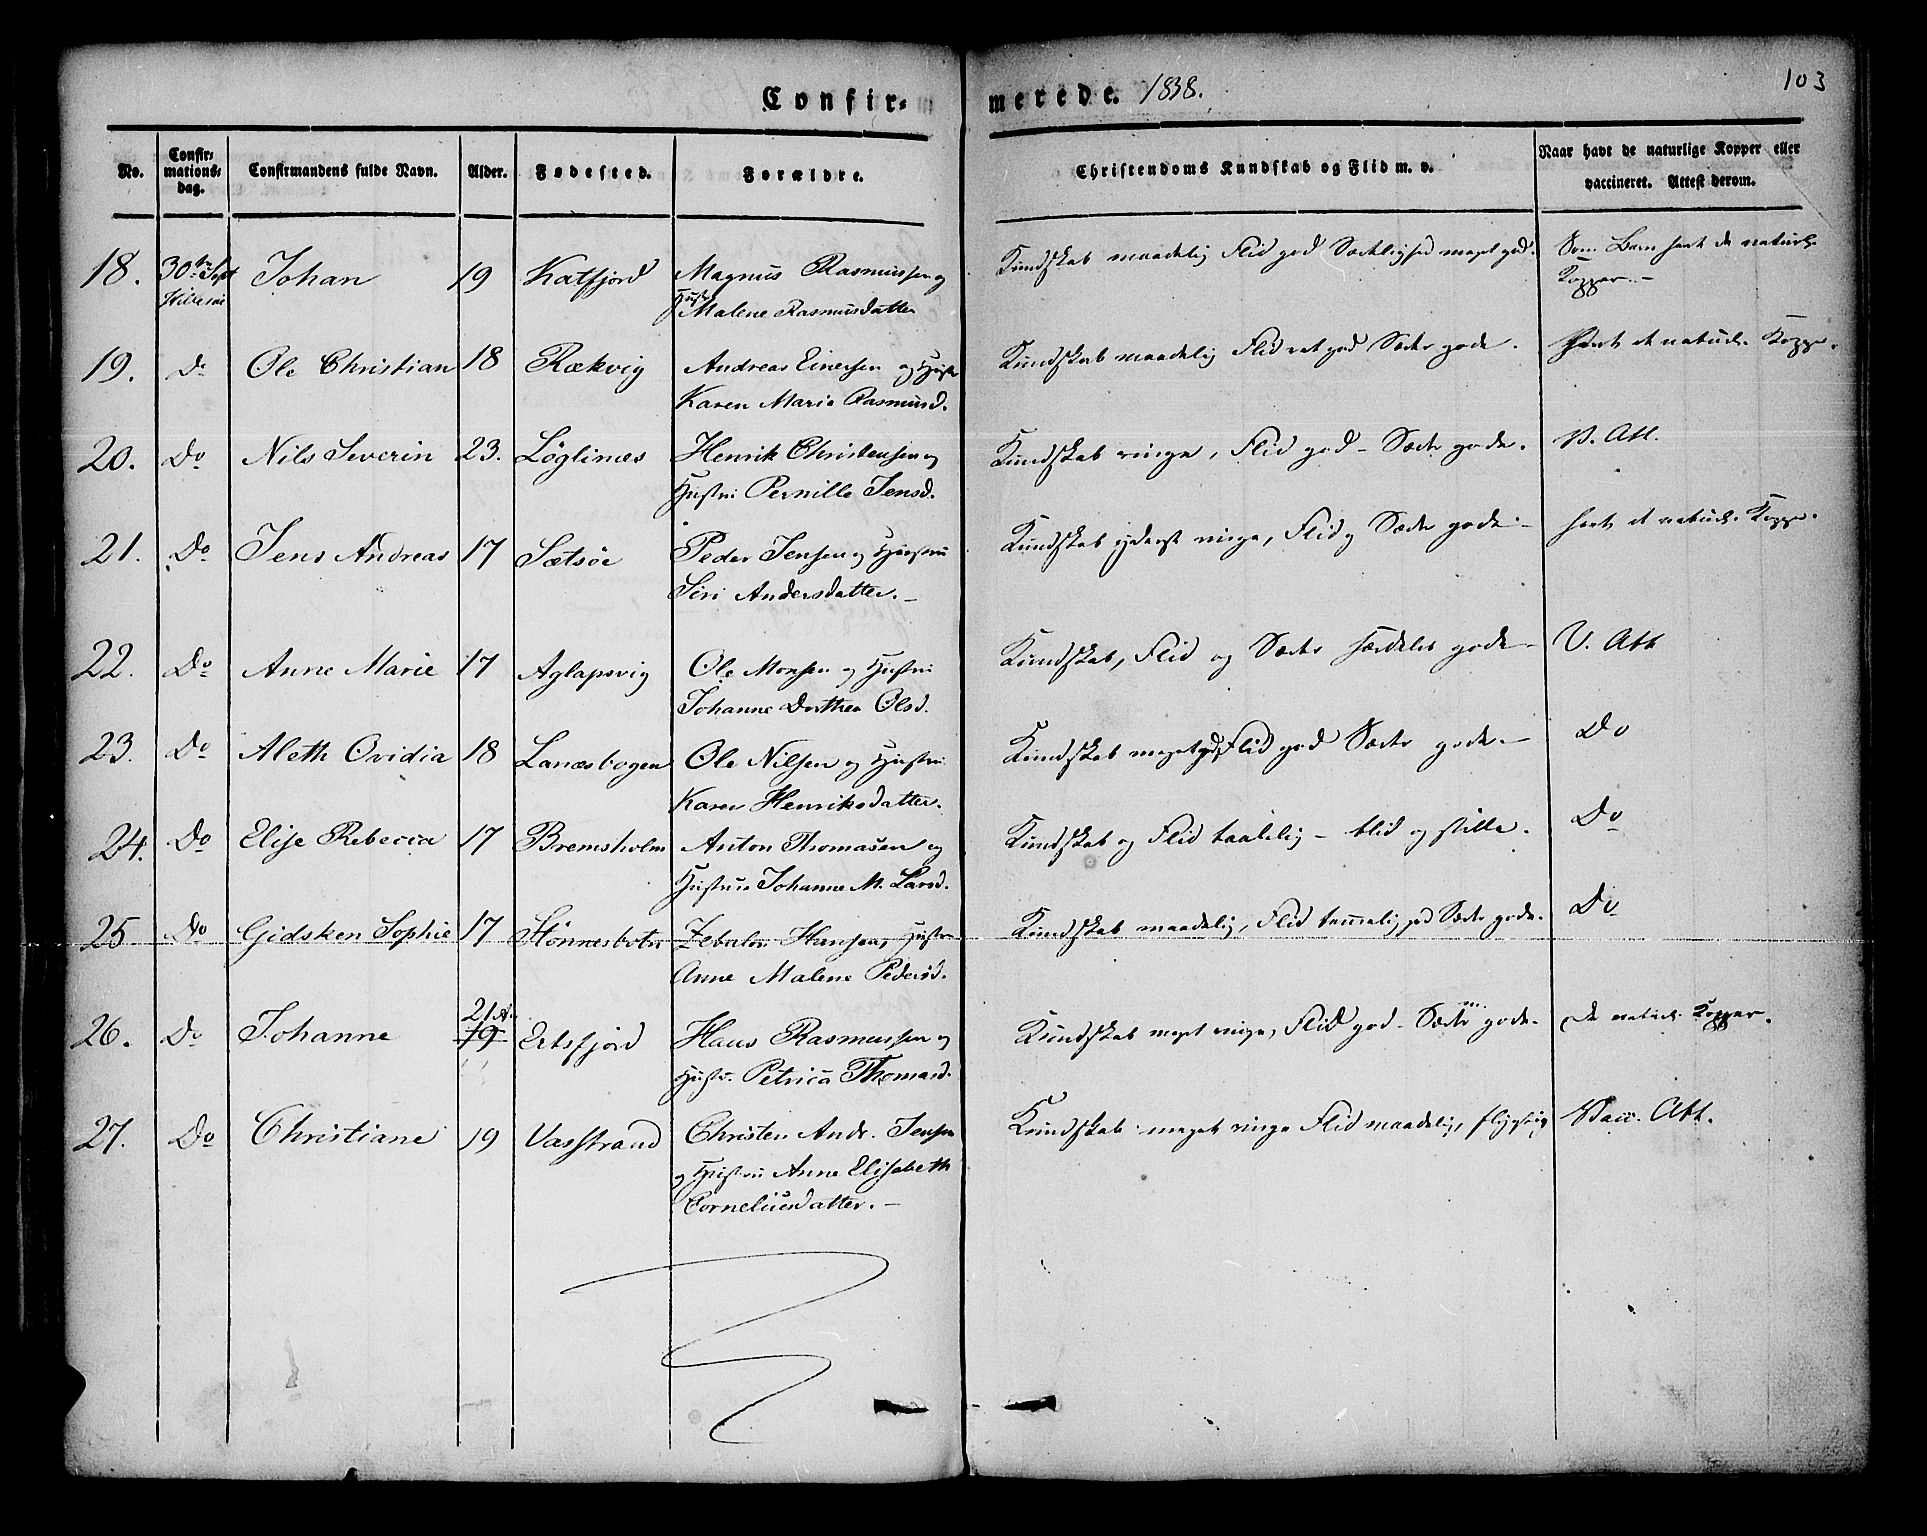 Confir- merede. 1838. 103
No. Confir- mations- dag. Confirmandens fulde Navn. Alder. Fødested. Forældre. Christendoms Kundskab og Flid m. v. Naar havt de naturlige Kopper eller vaccineret. Attest derom.
18. 30te Sept Johan 19 Katfjord Magnus Rasmussen og Kundskab maadelig Flid god Sædelighed meget god. Som Barn havt de naturl.
Hillesøe Hustr Malene Rasmusdatter Kopper.-
19. Do Ole Christian 18 Rækvig Andreas Einersen og Hustr Kundskab maadelig Flid ret god Sæder gode. havt de naturl. Kopper.
Karen Maria Rasmusd.
20. Do Nils Severin 23. Løglinæs Henrik Christensen og Kundskab ringe, Flid god - Sæder gode. V. Att.
Hustru Pernille Jensd.
21. Do Jens Andreas 17 Sætsøe Peder Jensen og Hustru Kundskab yderst ringe, Flid og Sæder gode - havt de naturl. Kopper.
Siri Andersdatter.-
22. Do Anne Marie 17 Aglapsvig Ole Monsen og Hustru Kundskab, Flid og Sæder særdeles gode - V. Att
Johanne Dorthea Olsd.
23. Do Aleth Ovidia 18 Lanæsbogen Ole Nilsen og Hustru Kundskab meget gd, Flid god Sæder gode.- Do
Karen Henriksdatter.
24. Do Elise Rebecca 17 Bremsholm Anton Thomasen og Kundskab og Flid taalelig - blid og stille. Do
Hustrue Johanne M. Larsd.
25 Do Gidsken Sophie 17 Hønnesbotn Zebulon Hansen, Hustru Kundskab maadelig, Flid temmelig god Sæder gode. Do
Anne Malene Pedersd.
26. Do Johanne 21 A. 19 Ertsfjord Hans Rasmussen og Kundskab meget ringe, Flid god - Sæder gode. De naturl. Kopper.
Hustr. Petrica Thomasd.
27. Do Christiane 19 Vasstrand Christen Andr. Jensen Kundskab meget ringe Flid maadelig, flygtig Vacc. Att.
og Hustru Anne Elisabeth
Corneliusdatter.-